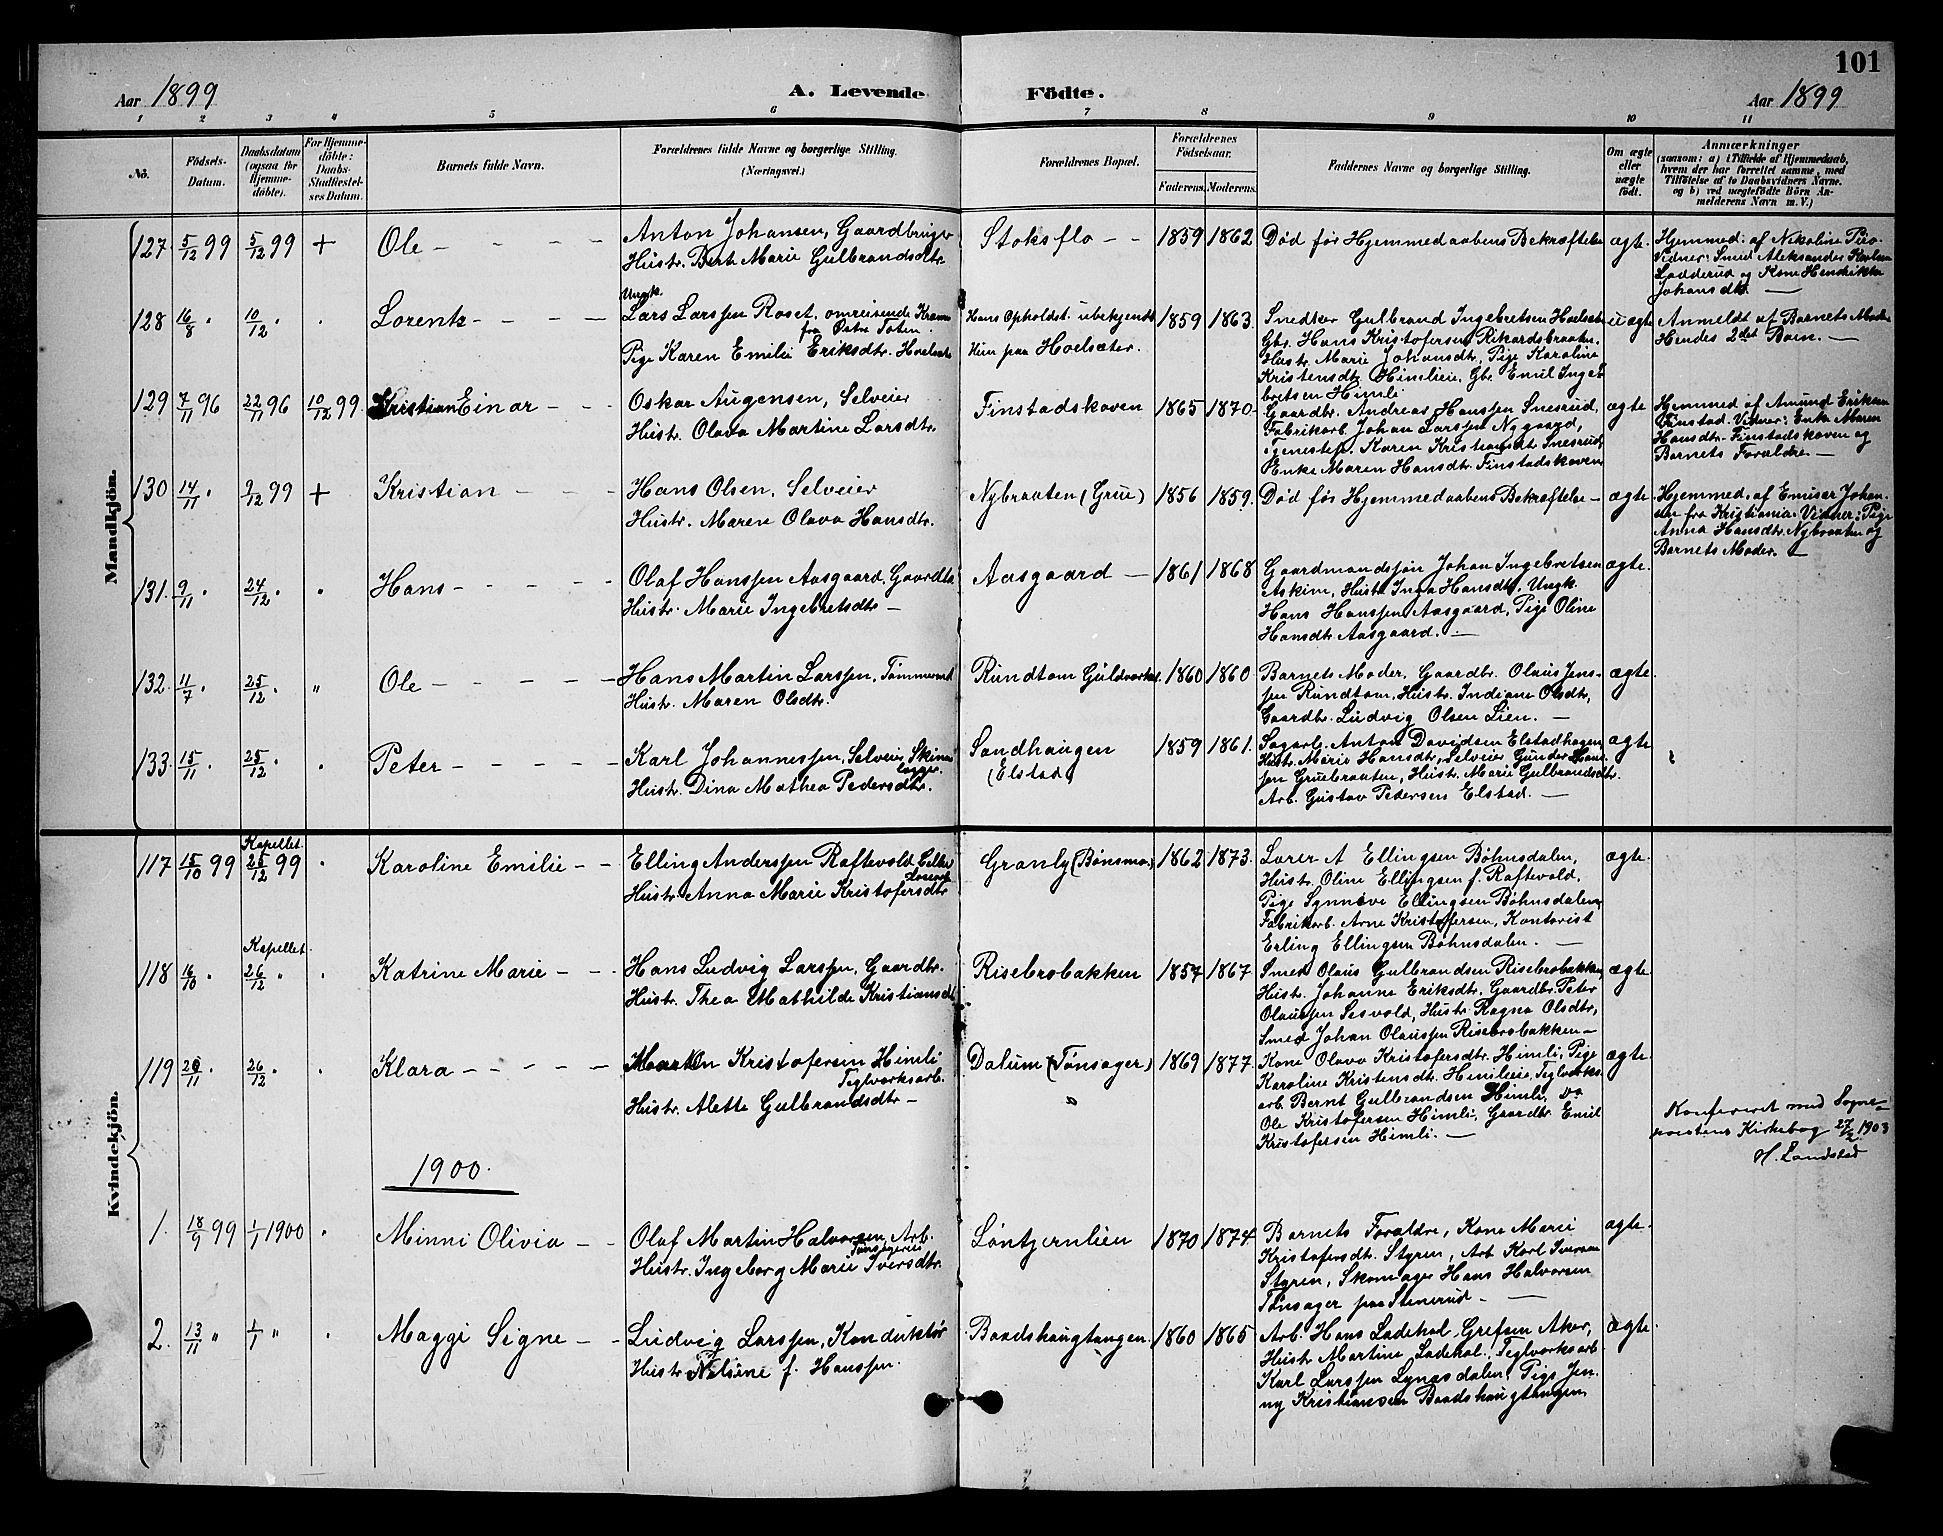 101
Aar 1899
A. Levende Födte.
Aar 1899
1 2 3 4 5 6 7 8 9 10 11
No.
Födsels-
Datum.
Daabsdatum
(ogsaa for
Hjemme-
döbte).
For Hjemme-
döbte:
Daabs-
Stadfæstel-
ses Datum.
Barnets fulde Navn.
Forældrenes fulde Navne og borgerlige Stilling.
(Næringsvei.)
Forældrenes Bopæl.
Forældrenes
Födselsaar.
Faderens. Moderens.
Faddernes Navne og borgerlige Stilling.
Om ægte
eller
uægte
födt.
Anmærkninger
(saasom: a) i Tilfælde af Hjemmedaab,
hvem der har forrettet samme, med
Tilföielse af to Daabsvidners Navne.
og b) ved uægtefödte Börn An-
melderens Navn m. V.)
Mandkjön.
127. 5/12 99 5/12 99 + Ole
Anton Johansen, Gaardbruger
Hustr. Bert. Marie Gulbrandsdtr.
Stoksflo 1859 1862
Död før Hjemmedaabens Bekræftelse ægte.
Hjemmed. af Nikoline
Vidner: Smed Aleksander Karlsen
Ladderud og Kone Hendrikke
Johansdtr
128 16/8 " 10/12 " Lorents
Ungk.
Lars Larssen Roset, omreisende Kræm
fra Østre Toten.
Pige Karen Emilie Eriksdtr. Hoelsæter
Hans Opholdst. ubekjendt
Hun paa Hoelsæter.
1859 1863
Snedker Gulbrand Ingebretsen Hoelsæter
Gbr. Hans Kristofersen Rikardsbraaten,
Hustr. Marie Johansdtr, Pige Karoline
Kristensdtr Himlieie, Gbr. Emil Inge-
bretsen Himli
uægte
Anmeldt af Barnets Moder
Hendes 2det Barn.
129 7/11 96 22/11 96 10/12 99 Kristian Einar
Oskar Augensen, Selveier
Hustr. Olava Martine Larsdtr.
Finstadskoven 1865 1870
Gaardbr. Andreas Hanssen Snesrud,
Fabrikarb. Johan Larssen Nygaard,
Tjenestep. Karen Kristiansdtr Snesrud,
Enke Maren Hansdtr. Finstadskoven
ægte
Hjemmed. af Amund Eriksen
Finstad. Vidner: Enke Maren
Hansdtr. Finstadskoven og
Barnets Forældre
130 14/11 " 9/12 99 + Kristian
Hans Olsen, Selveier
Hustr. Maren Olava Hansdtr.
Nybraaten (Grue) 1856 1859.
Död før Hjemmedaabens Bekræftelse ægte.
Hjemmed. af Emisær Johan-
sen fra Kristiania. Vidner: Pige
Anna Hansdtr. Nybraaten og
Barnets Moder.
131. 9/11 " 24/12 " Hans
Olaf Hanssen Aasgaard, Gaardbr
Hustr. Marie Ingebretsdtr
Aasgaard 1861 1868
Gaardmandssøn Johan Ingebretsen
Askim, Hustr. Inga Hansdtr, Ungk.
Hans Hanssen Aasgaard, Pige Oline
Hansdtr Aasgaard.
ægte.
132. 11/7 " 25/12 " Ole
Hans Martin Larssen, Tømmermd
Hustr. Maren Olsdtr.
Rundtom Guldverket 1860 1860
Barnets Moder, Gaardbr. Olaus Jens-
sen Rundtom, Hustr. Indiane Olsdtr,
Gaardbr. Ludvig Olsen Lien.
ægte.
133. 15/11 " 25/12 " Peter
Karl Johannessen, Selveier, Skinne
lægger.
Hustr. Dina Mathea Pedersdtr.
Sandhaugen
(Elstad)
1859 1861.
Sagarb. Anton Davidsen Elstadhagen,
Hustr. Marie Hansdtr, Selveier Gunder Han-
sen Gruebraaten, Hustr. Marie Gulbrandsdtr.
Arb. Gustav Pedersen Elstad.
ægte
Kvindekjön.
117 15/10 99 Kapellet. 25/12 99 " Karoline Emilie
Elling Anderssen Raftevold,
Hustr. Anna Marie Kristofersdtr
Granly (Bönsmo) 1862 1873.
Lærer A Ellingsen Böhnsdalen,
Hustr. Oline Ellingsen f. Raftevold,
Pige Synnøve Ellingsen Böhnsdalen,
Fabrikarb. Arne Kristofersen, Kontorist
Erling Ellingsen Böhnsdalen.
ægte
118 16/10 " Kapellet. 26/12 " Katrine Marie
Hans Ludvig Larssen, Gaardbr.
Hustr. Thea Mathilde Kristiansdtr
Risebrobakken 1857 1867
Smed Olaus Gulbrandsen Risebrobakken,
Hustr. Johanne Eriksdtr, Gaardbr. Peter
Olaussen Sesvold, Hustr. Ragna Olsdtr,
Smed Johan Olaussen Risebrobakken
ægte.
119 26/11 " 26/12 " Klara
Martin Kristofersen Himli
Teglværksarb.
Hustr. Alette Gulbrandsdtr
Dalum (Tønsager) 1869 1877
Kone Olava Kristofersdtr. Himli, Pige
Karoline Kristensdtr. Himlieie, Teglværks-
arb. Bernt Gulbrandsen Himli, Do
Ole Kristofersen Himli, Gaardbr. Emil
Kristofersen Himli.
ægte.
Konfereret med Sogne-
præstens Kirkebog 27/2 1903
H. Landstad
1900.
1. 18/9 99 1/1 1900 " Minni Olivia
Olaf Martin Halvorsen, Arb.
Tønsageie
Hustr. Ingeborg Marie Iversdtr
Løntjernlien 1870 1874
Barnets Forældre, Kone Marie
Kristofersdtr. Styren, Arb. Karl Iversen
Styren, Skomager Hans Halvorsen
Tønsager paa Stenerud
ægte.
2. 13/11 " 1/1 " Maggi Signe
Ludvig Larssen, Konduktør
Hustr. Nelsine f. Hanssen.
Baadshaugtangen 1860 1865
Arb. Hans Ladehol, Grefsen Aker,
Hustr Martine Ladehol, Teglværksarb.
Karl Larssen Lynæsdalen, Pige Jen-
ny Kristiansen Baadshaugtangen
ægte.